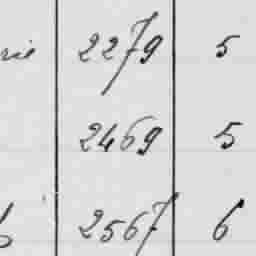 rie 2279 5
2469 5
2567 6